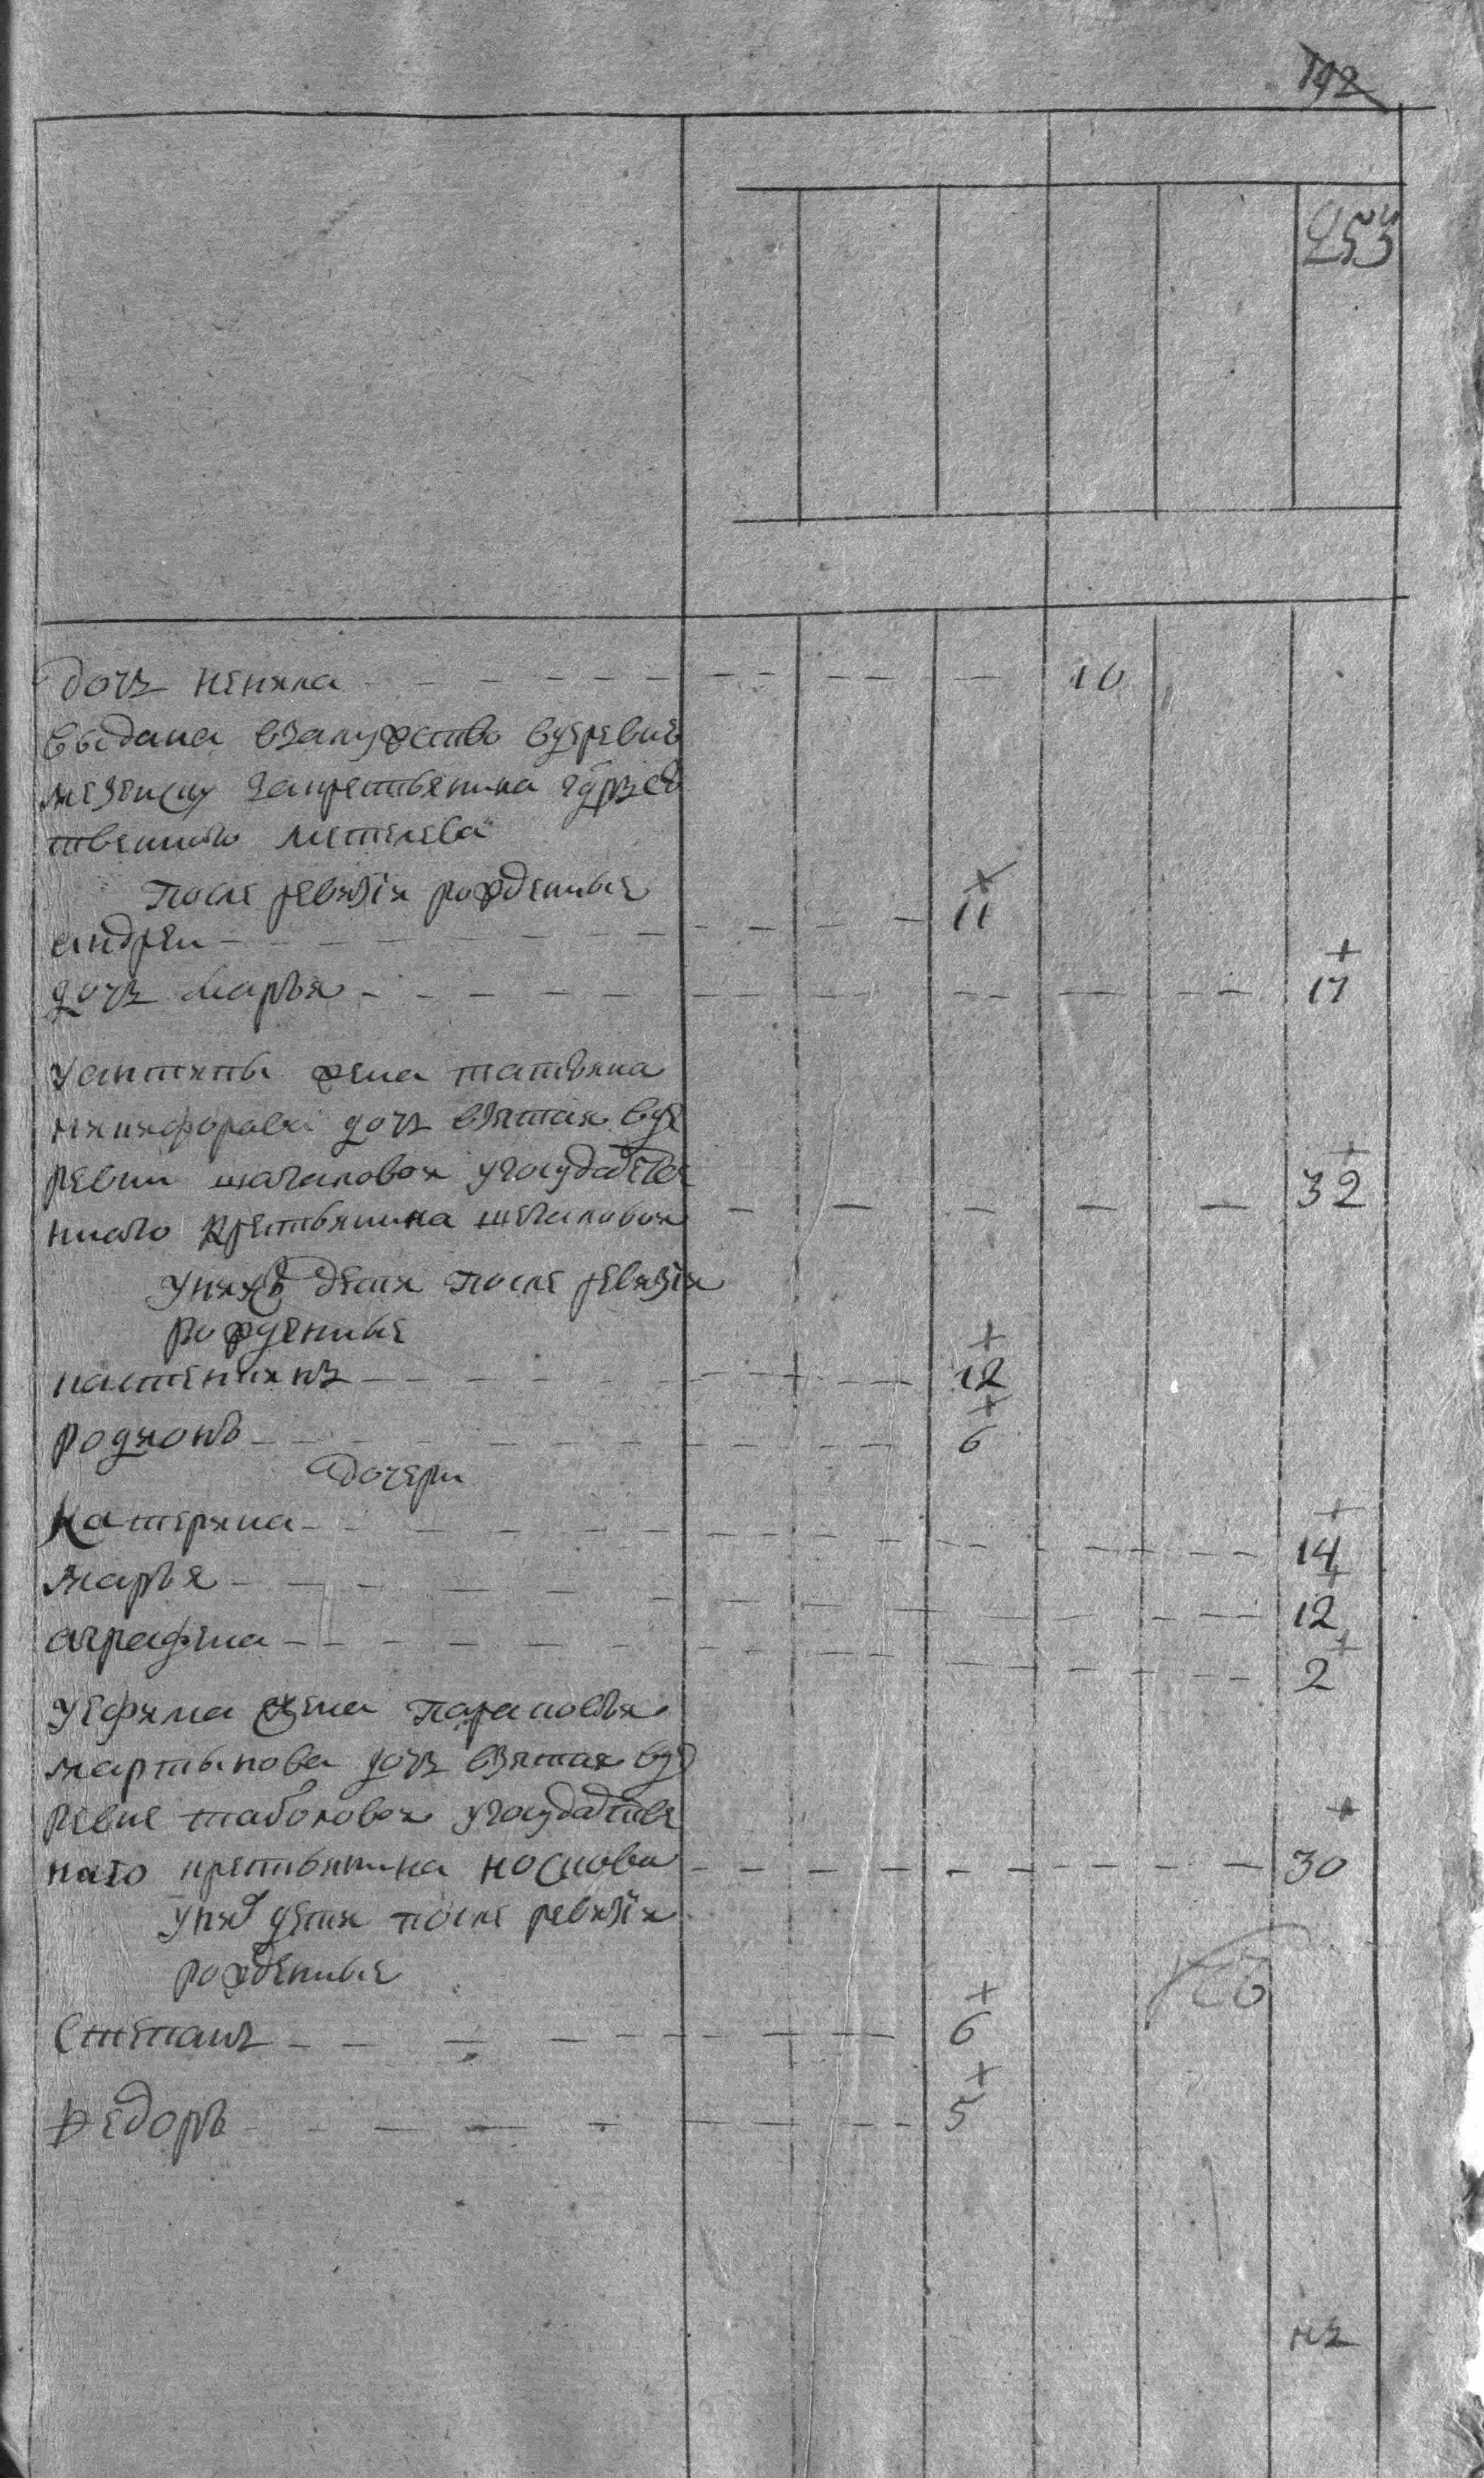 192
253
дочь ненила 10
выдана взамужство вдеревню
мезенску закрестьянина гдрс
твенного метелева
после ревизiи рожденные
андреи 11
дочь марья 17
уантипы жена татьяна
никифорова дочь взятая вде
ревни шагаловои угосударстве
нного крестьянина шегаловои 32
униxъ дети после ревизiи
рожденные
12
родионъ 6
дочери
катерина 14
марья 12
аграфена 2
уефима жена парасковья
мартынова дочь взятая вде
ревне таболовои угосударстве
наго крестьянина носкова 30
униx дети после ревизiи
рожденные
степанъ 6
Федоръ 5